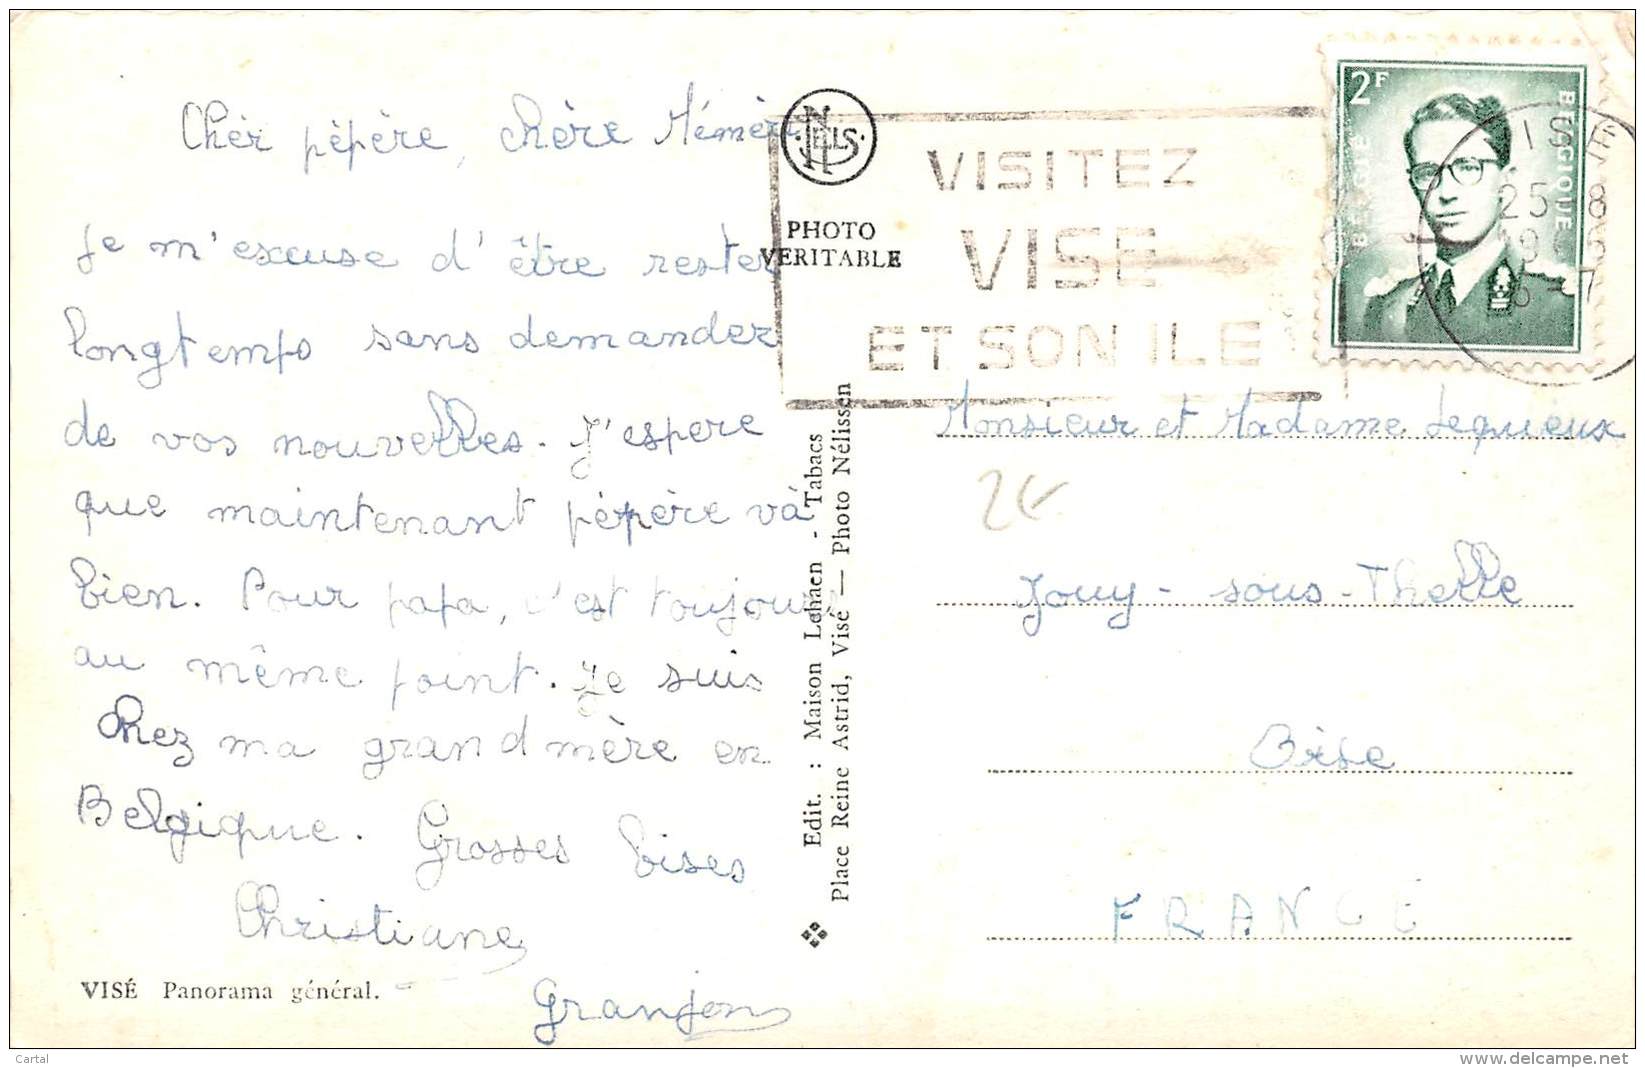 Chèr pépère, chère Mémère
Je m'excuse d'être rester
longtemps sans demander
de vos nouvelles. J'espere
que maintenant pépère và
bien. Pour papa, c'est toujours
au même point. Je suis
chez ma grand mère en
Belgique. Grosses bises
Christiane
Granjon
VISÉ Panorama général.
NELS
PHOTO
VERITABLE
Edit. : Maison Lehaen - Tabacs
Place Reine Astrid, Visé — Photo Nélissen
VISITEZ
VISE
ET SON ILE
2F
BELGIË
BELGIQUE
25 8
Monsieur et Madame Lequeux
2€
Jouy - sous - Thelle
Oise
FRANCE
Cartal
www.delcampe.net